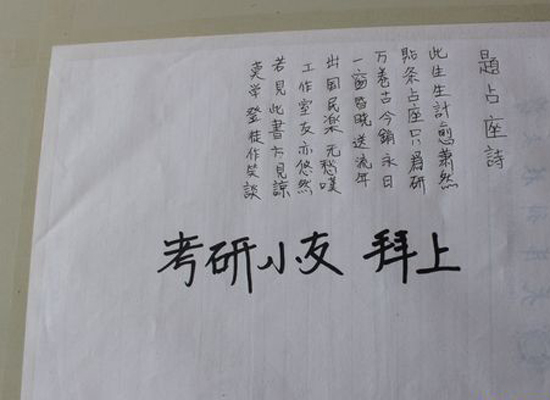 題占座詩
此生生計愈蕭然
貼条占座只為研
万卷古今銷永日
一窗昏晚送流年
出國民楽无愁嘆
工作室友亦悠然
若見此書六見諒
莫学登徒作笑談
考研小友 拜上